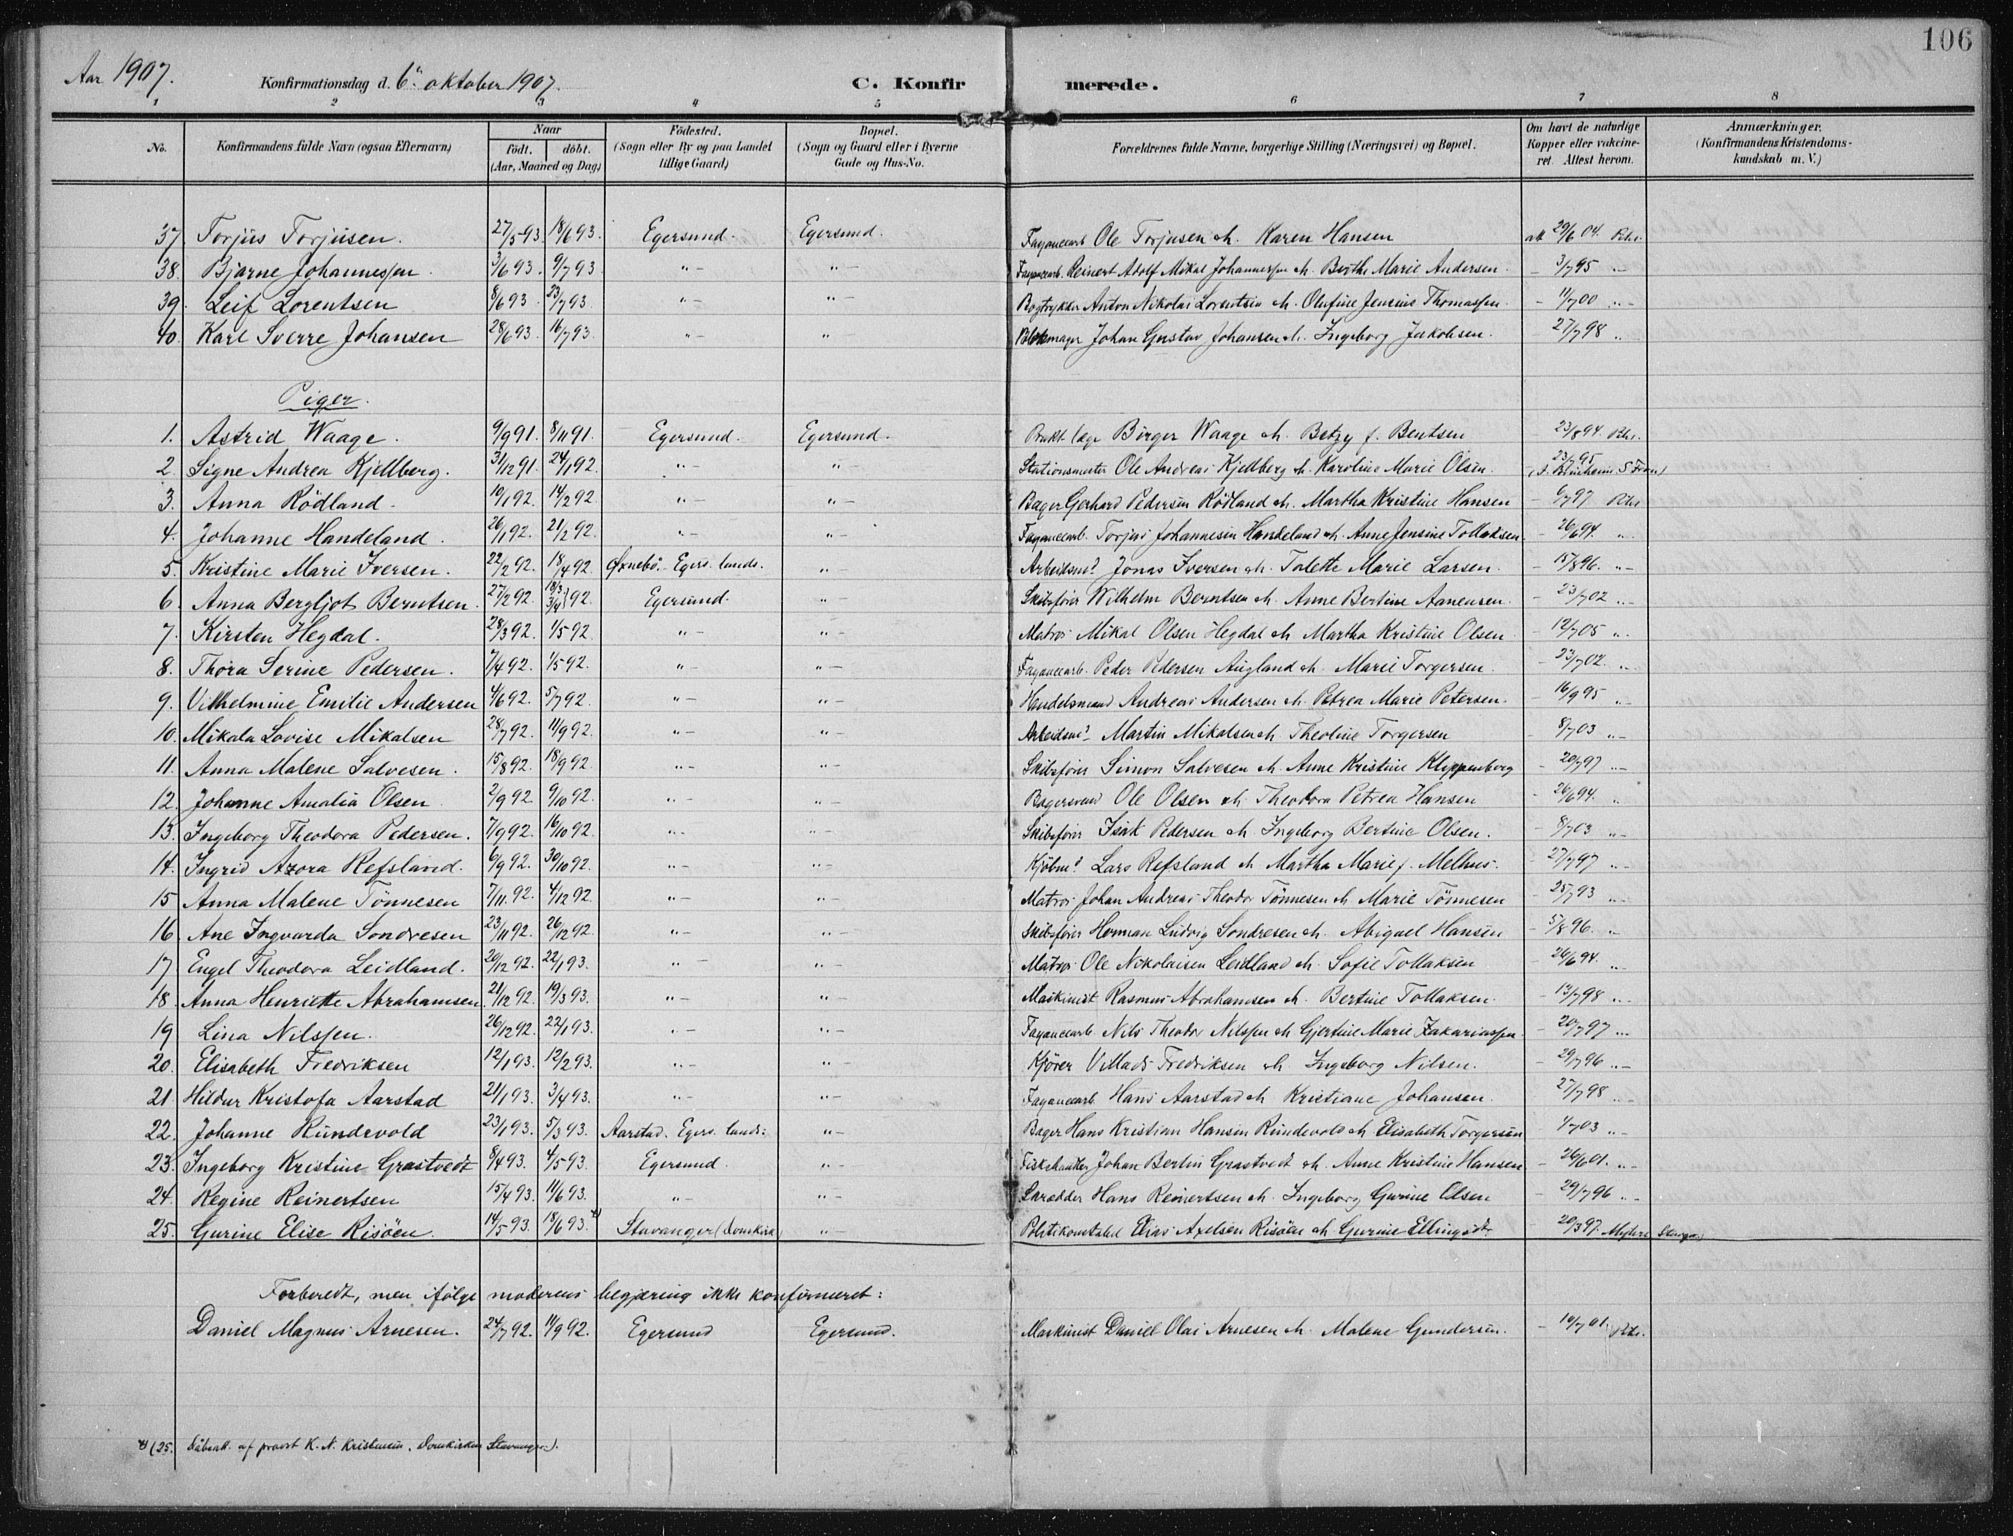 106
Aar 1907. Konfirmationsdag d. 6te oktober 1907. C. Konfirmerede.
1 2 3 4 5 6 7 8
No. Konfirmandens fulde Navn (ogsaa Efternavn) Naar Födt. döbt. (Aar, Maaned og Dag) Födested. (Sogn eller By og paa Landet tillige Gaard) Bopæl. (Sogn og Gaard eller i Byerne Gade og Hus-No. Forældrenes fulde Navne, borgerlige Stilling (Næringsvei) og Bopæl. Om havt de naturlige Kopper eller vakcineret. Attest herom. Anmærkninger. (Konfirmandens Kristendomskundskab m. V.)
37. Torjus Torjusen. 27/5 93. 18/6 93. Egersund. Egersund. Fayancearb. Ole Torjusen & h. Karen Hansen att 29/6 04. Rtr.
38. Bjarne Johannessen. 3/6 93. 9/7 93. "– "– Fayancearb. Reinert Adolf Mikal Johannessen & h. Berthe Marie Andersen. – 3/7 95 "–
39. Leif Lorentsen 8/6 93. 23/7 93. "– "– Bogtrykker Anton Nikolai Lorentsen & h. Olufine Jensine Thomassen. – 11/7 00 "–
40. Karl Sverre Johansen 28/6 93. 16/7 93. "– " Blokmager Johan Gustav Johansen & h. Ingeborg Jakobsen. – 27/7 98 "
Piger.
1. Astrid Waage. 9/9 91. 8/11 91. Egersund. Egersund. Prakt. læge Birger Waage & h. Betzy f. Bentsen – 23/8 94. Rtr.
2. Signe Andrea Kjellberg. 31/12 91. 24/1 92. "– "– Stationsmester Ole Andreas Kjellberg & h. Karoline Marie Olsen. – 23/7 95
3. Anna Rödland. 10/1 92. 14/2 92. "– "– Bager Gerhard Pedersen Rödland & h. Martha Kristine Hansen – 6/7 97 Rtr
4. Johanne Handeland. 26/1 92. 21/2 92. "– "– Fayancearb. Torjus Johannesen Handeland & h. Anne Jensine Tollaksen. – 26/6 94. "
5. Kristine Marie Iversen. 22/2 92. 18/4 92. Øxnebö. Egers. lands. "– Arbeidsmd Jonas Iversen & h. Tolette Marie Larsen. – 15/8 96. "–
6. Anna Bergljot Berntsen. 27/2 92. 18/3 3/4 92. Egersund. "– Skibsförer Wilhelm Berntsen & h. Anne Bertine Aanensen. – 23/7 02 "–
7. Kirsten Hegdal. 28/3 92. 1/5 92. "– "– Matros Mikal Olsen Hegdal & h. Martha Kristine Olsen. – 12/7 05 "
8. Thora Serine Pedersen. 7/4 92. 1/5 92. "– "– Fayancearb. Peder Pedersen Augland & h. Marie Torgersen. – 23/7 02. "–
9. Vilhelmine Emilie Andersen 4/6 92. 5/7 92. "– "– Handelsmand Andreas Andersen & h. Petrea Marie Petersen. – 16/9 95 "
10. Mikala Lovise Mikalsen 28/7 92. 11/9 92. "– "– Arbeidsmd Martin Mikalsen & h. Theoline Torgersen – 8/7 03 "–
11. Anna Malene Salvesen. 15/8 92. 18/9 92. "– "– Skibsförer Simon Salvesen & h. Anne Kristine Kloppenborg – 20/7 97 "–
12. Johanne Amalia Olsen 2/9 92. 9/10 92. "– "– Bagersvend Ole Olsen & h. Theodora Petrea Hansen – 26/6 94. "
13. Ingeborg Theodora Pedersen. 7/9 92. 16/10 92. "– "– Skibsförer Isak Pedersen & h. Ingeborg Bertine Olsen. – 8/7 03 "–
14. Ingrid Azora Refsland. 6/9 92. 30/10 92. "– "– Kjöbmd Lars Refsland & h. Martha Marie f. Melhus. – 27/7 97 "–
15 Anna Malene Tönnesen 7/11 92. 4/12 92. "– "– Matros Johan Andreas Theodor Tönnesen & h. Marie Tönnesen – 25/7 93 "–
16. Ane Ingvarda Sondresen 23/11 92. 26/12 92. "– "– Skibsförer Herman Ludvig Sondresen & h. Abigael Hansen – 5/8 96. "
17 Engel Theodora Leidland. 20/12 92. 22/1 93. "– "– Matros Ole Nikolaisen Leidland & h. Sofie Tollaksen – 26/6 94. "
18. Anna Henriette Abrahamsen 21/12 92. 19/3 93. "– "– Maskinist Rasmus Abrahamsen & h. Bertine Tollaksen. – 13/7 98 "–
19 Lina Nilssen. 26/12 92. 22/1 93. "– "– Fayancearb Nils Theodor Nilssen & h Gjertine Marie Zakariassen. – 20/7 97 "–
20. Elisabeth Fredriksen 12/1 93. 12/2 93. "– "– Kjörer Villads Fredriksen & h. Ingeborg Nilsen. – 29/7 96 "–
21. Hildur Kristofa Aarstad 21/1 93. 3/4 93. "– "– Fayancearb. Hans Aarstad & h Kristiane Johansen. – 27/7 98 "–
22. Johanne Rundevold 23/1 93. 5/3 93. Aarstad. Egers. lands: "– Bager Hans Kristian Hansen Rundevold & h Elisabeth Torgersen – 4/7 03 "–
23. Ingeborg Kristine Grastvedt 8/4 93. 4/5 93. Egersund. "– Fiskehandler Johan Bertin Grastvedt & h. Anne Kristine Hansen – 26/6 01. "–
24. Regine Reinertsen 15/4 93. 11/6 93. "– "– Skrædder Hans Reinertsen & h. Ingeborg Gurine Olsen – 29/7 96 "–
25. Gurine Elise Risöen. 14/5 93. 18/6 93. x) Stavanger (Domkirk) "– Politikonstabel Elias Axelsen Risöen & h Gurine Ellingsdtr – 20/3 97. Stavgr)
Forberedt, men ifölge moderens begjæring ikke konfirmeret:
Daniel Magnus Arnesen. 24/7 92. 11/9 92. Egersund Egersund. Maskinist Daniel Olai Arnesen & h. Malene Gundersen. – 10/7 01. Rtr.
x) (25. Dåbsatt. af provst K. N. Kristensen, Domkirken Stavanger.).